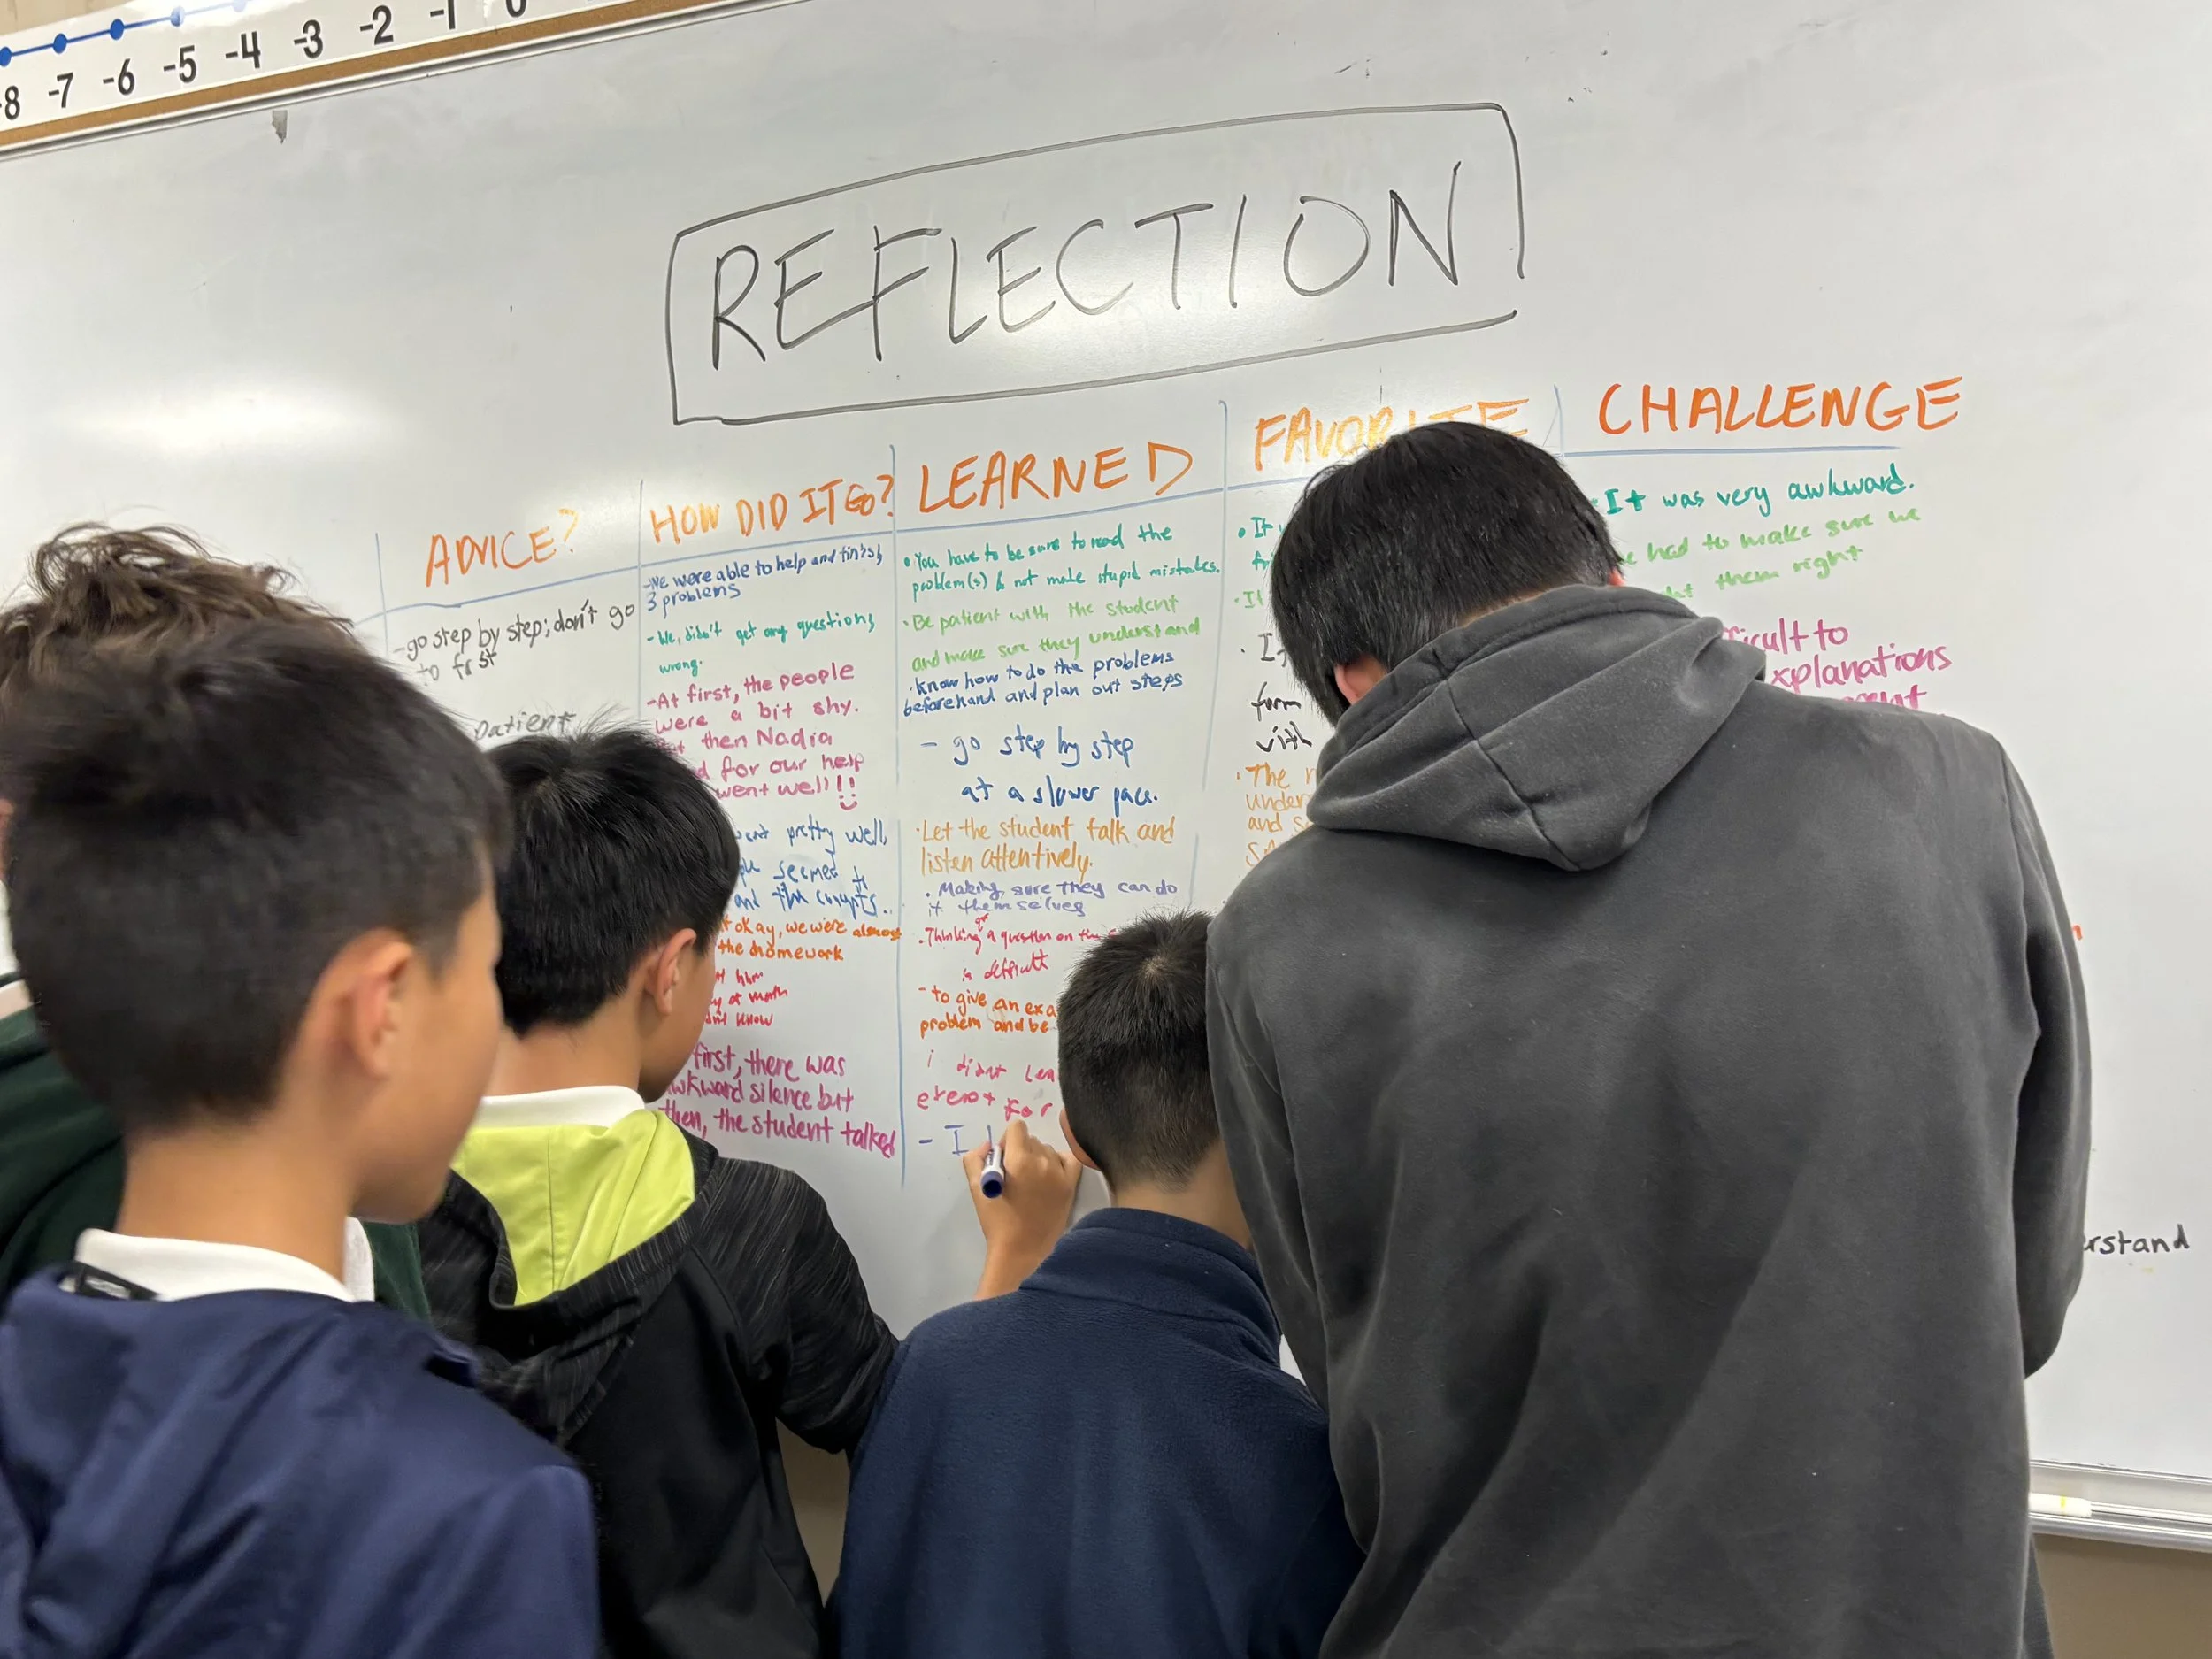 -8 -7 -6 -5 -4 -3 -2 -1 0
REFLECTION
ADVICE?
-go step by step; don't go
to frst
patient
HOW DID IT GO?
-We were able to help and finish
3 problems
-We, didn't get any questions
wrong.
-At first, the people
were a bit shy.
then Nadia
for our help
went well!!
pretty well,
seemed to
and the
okay, we were almost
the homework
him
of math
know
first, there was
awkward silence but
then, the student talked
LEARNED
• You have to be sure to read the
problem(s) & not make stupid mistakes.
• Be patient with the student
and make sure they understand
• know how to do the problems
beforehand and plan out steps
- go step by step
at a slower pace.
• Let the student talk and
listen attentively.
• Making sure they can do
it themselves
• Thinking of a question on the
is difficult
- to give an exa
problem and be
i didnt lea
for
- I
FAVORITE
• It
• It
• It
form
with
• The
under
and s
CHALLENGE
It was very awkward.
had to make sure we
them right
icult to
xplanations
erstand